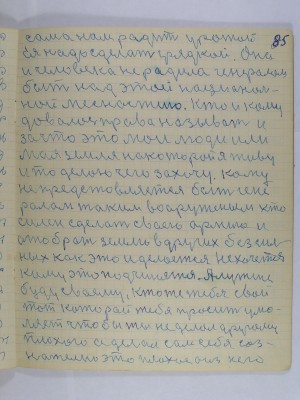 сама нам радит урожай 85
ея надо сделат грядкой. Она
и человека не радила генералом
быт над этой национал-
ной месностию. Кто и кому
довал ос права называт и
за что это мои люди или
моя земля на которой я живу
и то делаю чего захочу. Кому
не предоставляется быт гене
ралом таким вооруженым кто
сумел сделат сваего армию и
отобрат землю в других безсил-
ных как это и делается не хочется
кому это подчинятся. А лутше
буду сваему, кто же тебя свой
тот каторай тебя просит умо-
ляет чтобы ты не делал другому
плохого а делал сам себя соз-
нателно это плохое а из него